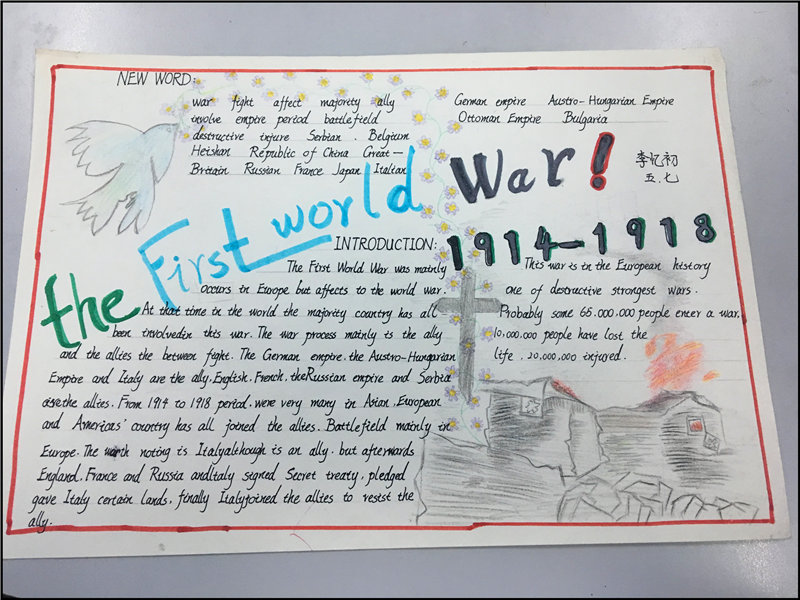 NEW WORD:
war fight affect majority ally
involve empire period battlefield
destructive injure Serbian . Belgium
Heishan Republic of China Great—
Britain Russian France Japan Italian
German empire Austro-Hungarian Empire
Ottoman Empire Bulgaria
the First world War!
李忆初
五.七
1914—1918
INTRODUCTION:
The First World War was mainly
occurs in Europe. but affects to the world war.
At that time in the world the majority country has all
been involvedin this war. The war process mainly is the ally
and the allies the between fight. The German empire. the Austro-Hungarian
Empire and Italy are the ally. English. French. theRussian empire and Serbia
the allies. From 1914 to 1918 period. were very many in Asian. European
and Americas' country has all joined the allies. Battlefield mainly in
Europe. The worth noting is Italyalthough is an ally. but afterwards
England. France and Russia andItaly signed Secret treaty. pledged
gave Italy certain lands. finally Italyjoined the allies to resist the
ally.
This war is in the European history
one of destructive strongest wars.
Probably some 65.000.000 people enter a war.
10.000.000 people have lost the
life . 20.000.000 injured .